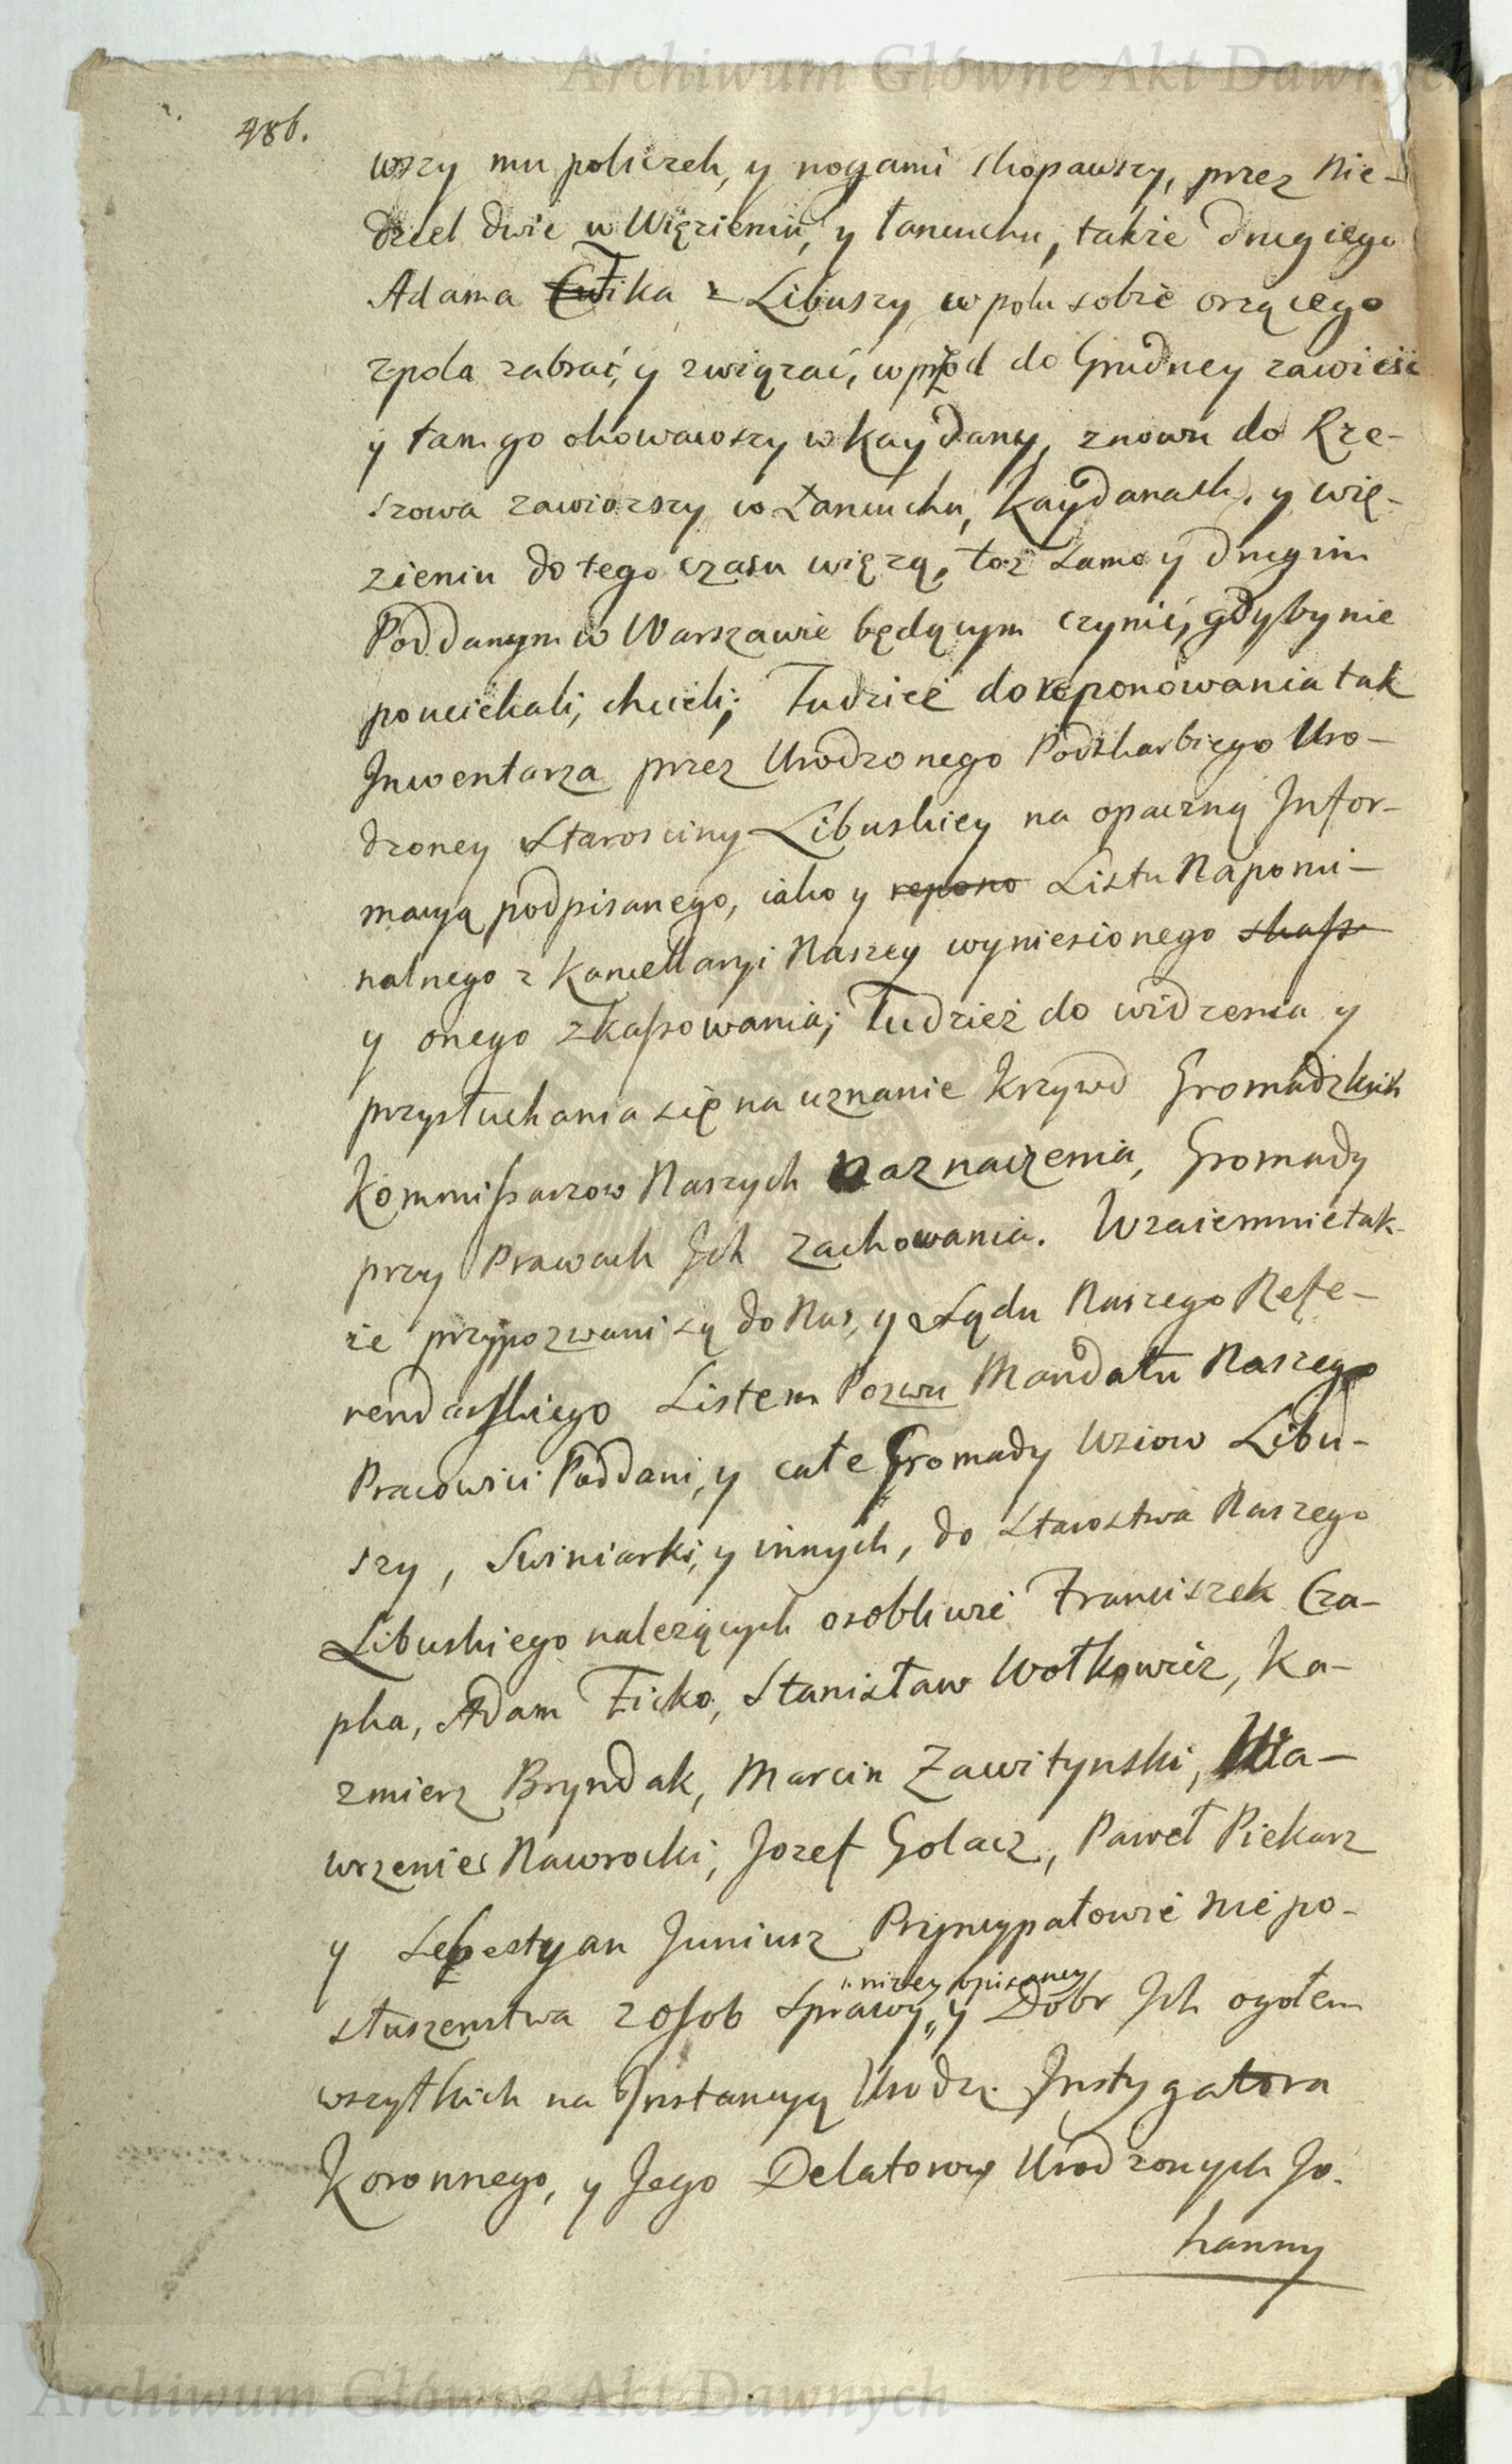 Archiwum Główne Akt Dawnych
486.
wszy mu policzek, y nogami skopawszy, przez Nie-
dziel dwie w Więzieniu, y Łancuchu, także drugiego
Adama Ćwika z Libuszy w polu sobie orzącego
z pola zabrać, y związać, wprzod do Grudney zawieść
y tam go okowawszy w Kaydany, znowu do Rze-
szowa zawiozszy w Łancuchu, Kaydanach, y wię-
zieniu do tego czasu więżą, toż samo y drugim
Poddanym w Warszawie będącym czynić, gdyby nie
pouciekali, chcieli; Tudzież do reponowania tak
Inwentarza przez Urodzonego Podskarbiego Uro-
dzoney Starosciny Libuskiey na opaczną Infor-
macyą podpisanego, iako y repono Listu Napomi-
nalnego z Kancellaryi Naszey wyniesionego skass
y onego zkassowania; Tudzież do widzenia y
przysłuchania się na uznanie Krzywd Gromadzkich
Kommissarzow Naszych Naznaczenia, Gromady
przy Prawach Ich zachowania. Wzaiemnie tak-
że przypozwani są do Nas, y Sądu Naszego Refe-
rendarskiego Listem Pozwu Mandatu Naszego
Pracowici Poddani, y całe Gromady Wsiow Libu-
szy, Swiniarki, y innych, do Starostwa Naszego
Libuskiego należących osobliwie Franciszek Cza-
pka, Adam Ficko, Stanisław Wołkowicz, Ka-
zmierz Bryndak, Marcin Zawitynski, Wa-
wrzeniec Nawrocki, Jozef Golacz, Paweł Piekarz
y Sebestyan Juniusz Pryncypałowie nie po-
słuszenstwa z osob Sprawy „ y Dobr Ich ogołem
„ niżey opisaney
wszytkich na Instancyą Urodz. Instygatora
Koronnego, y Jego Delatorow Urodzonych Jo-
hanny
Archiwum Główne Akt Dawnych